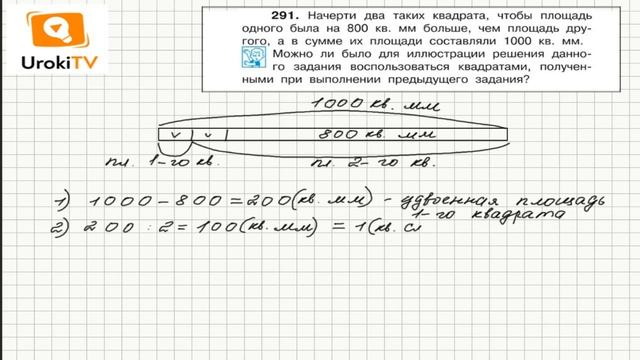 UrokiTV
291. Начерти два таких квадрата, чтобы площадь
одного была на 800 кв. мм больше, чем площадь дру-
гого, а в сумме их площади составляли 1000 кв. мм.
Можно ли было для иллюстрации решения данно-
го задания воспользоваться квадратами, получен-
ными при выполнении предыдущего задания?
1000 кв. мм
800 кв. мм
пл. 1-го кв. пл. 2-го кв.
1) 1000 - 800 = 200 (кв. мм) - удвоенная площадь
1-го квадрата
2) 200 : 2 = 100 (кв. мм) = 1 (кв. с